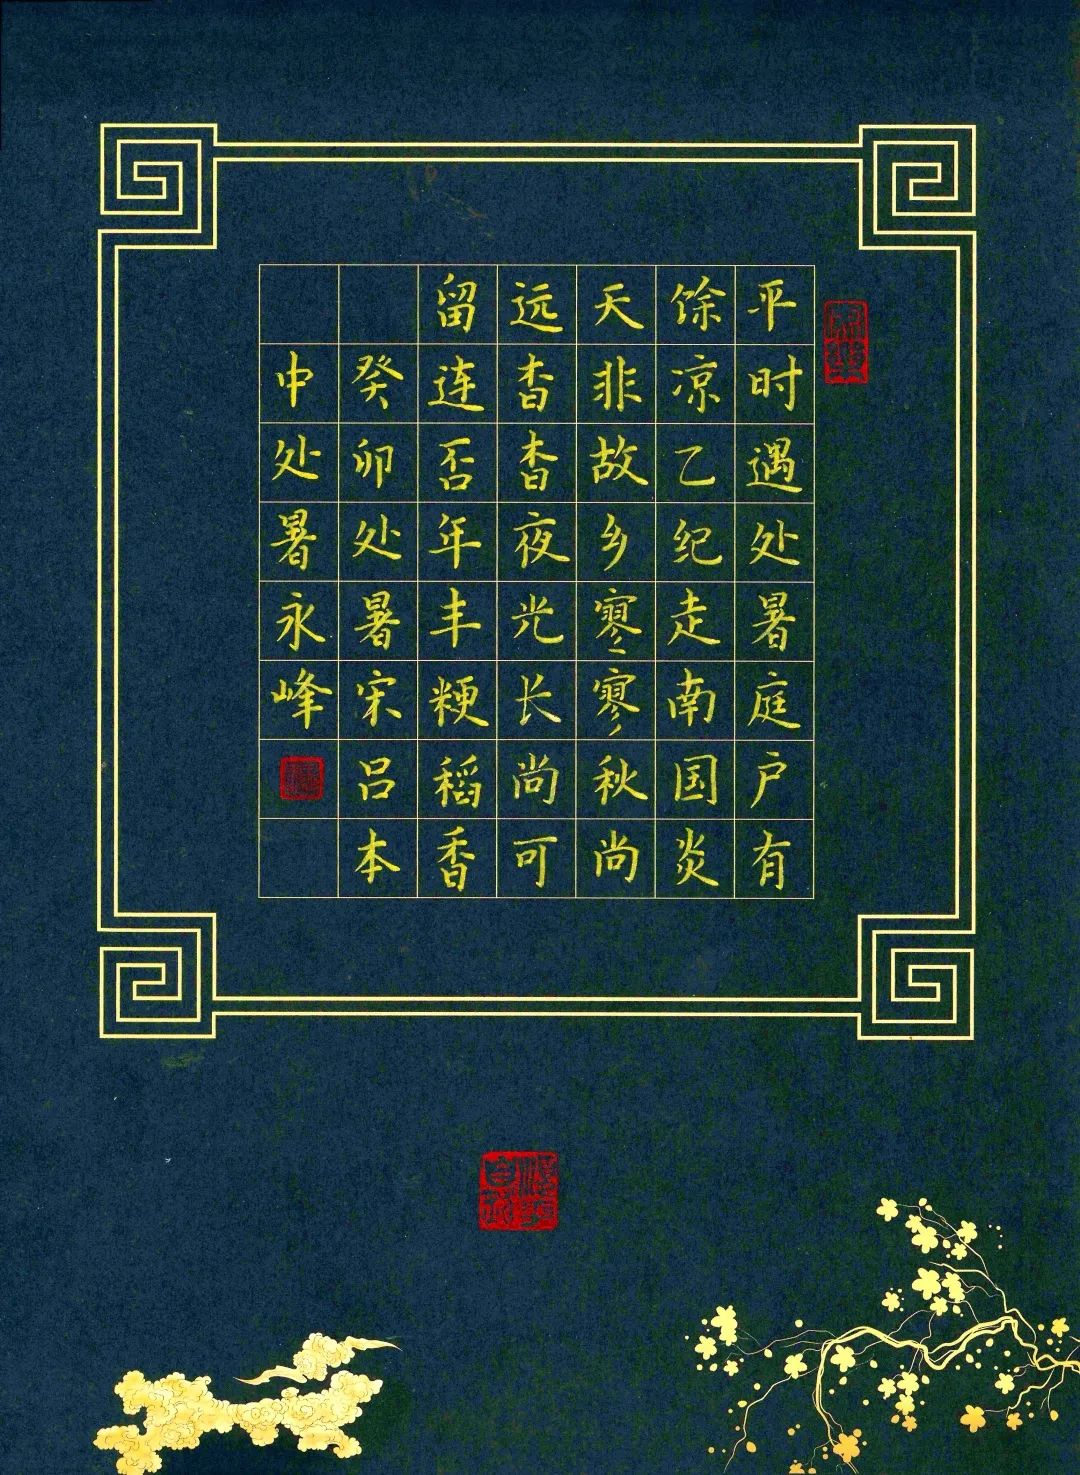 平时遇处暑庭户有
馀凉乙纪走南国炎
天非故乡寥寥秋尚
远杳杳夜光长尚可
留连否年丰粳稻香
癸卯处暑宋吕本
中处暑永峰